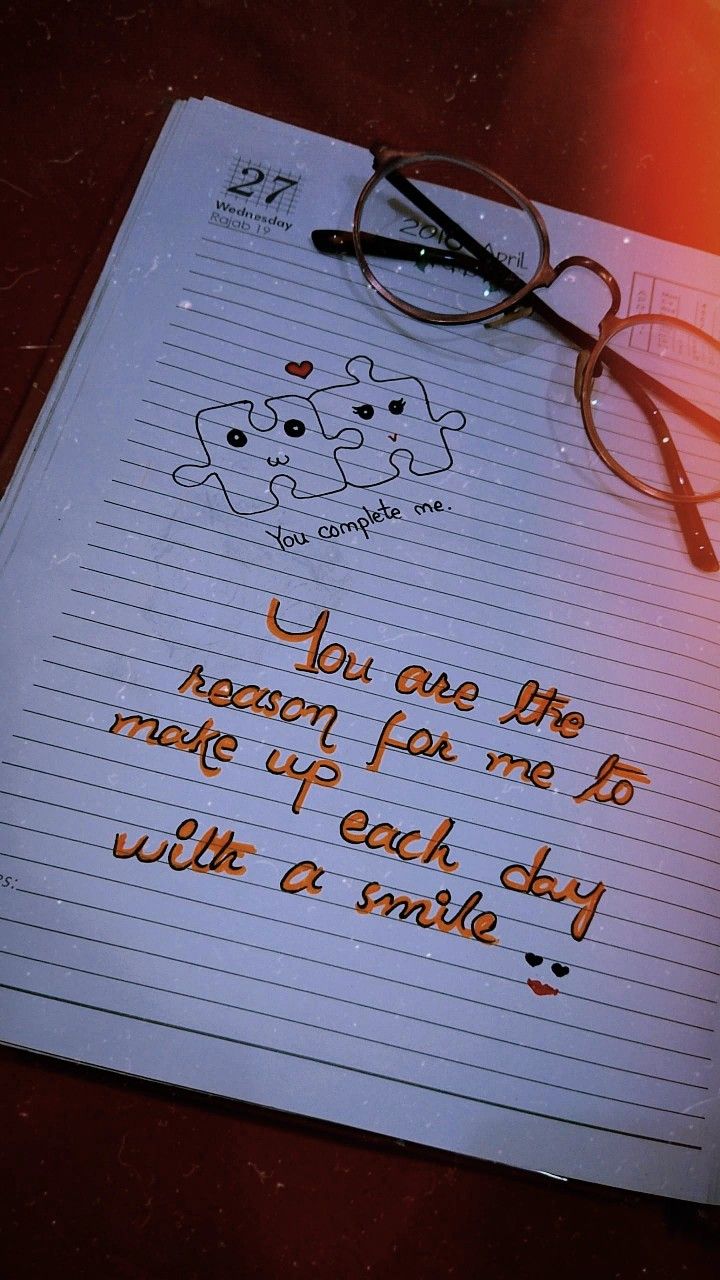 27
Wednesday
Rajab 19
April
You complete me.
You are the
reason for me to
make up
each day
with a smile